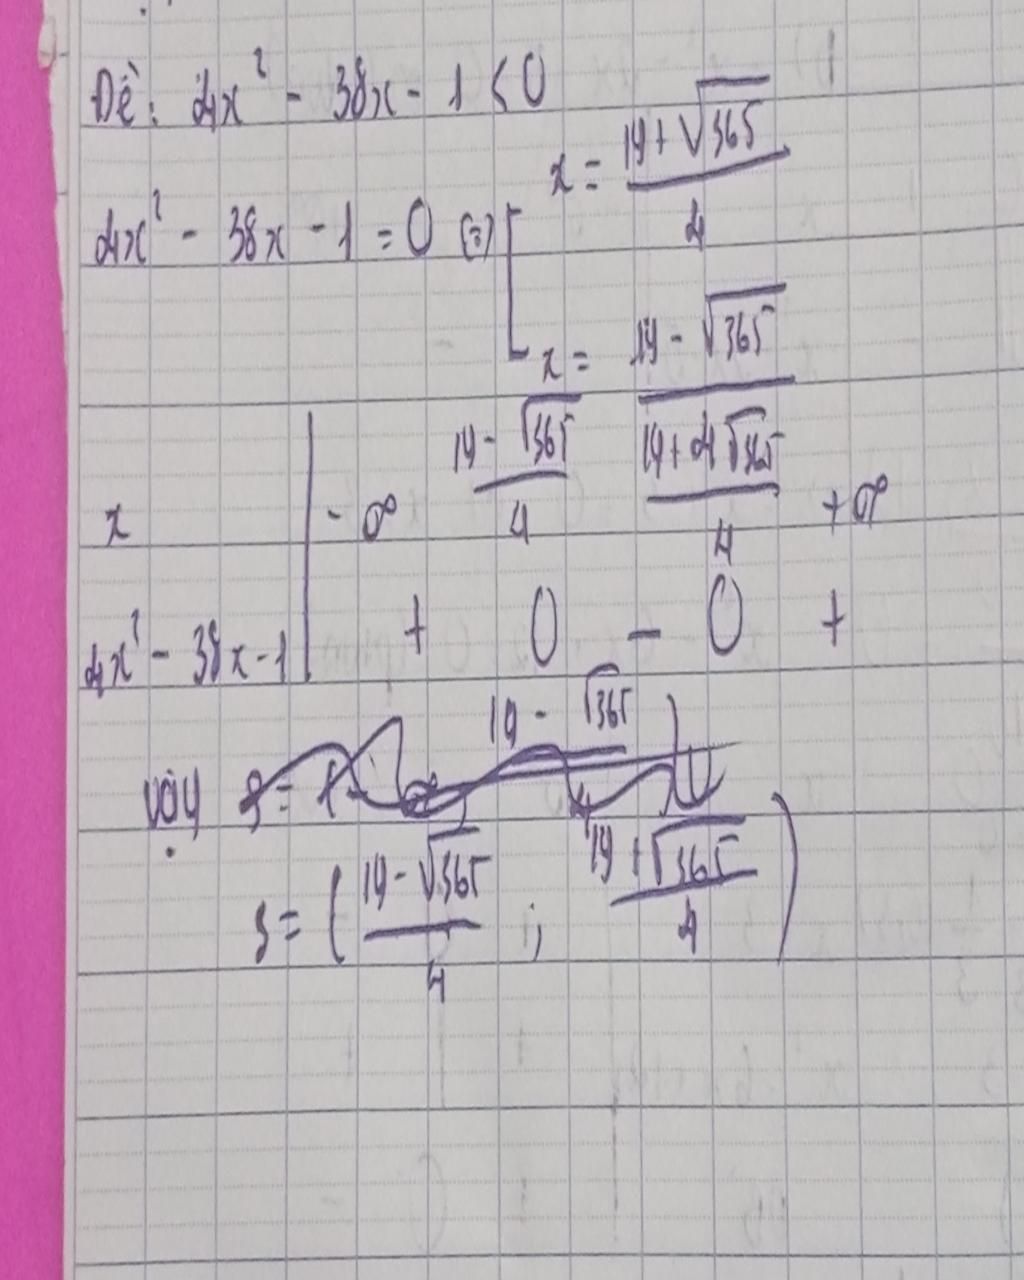 Đề: 4x² - 38x - 1 < 0
4x² - 38x - 1 = 0 (=) [ x = (19 + √365)/4
x = (19 - √365)/4
x | -∞ (19 - √365)/4 (19 + √365)/4 +∞
4x² - 38x - 1 | + 0 - 0 +
Vậy
S = ( (19 - √365)/4 ; (19 + √365)/4 )